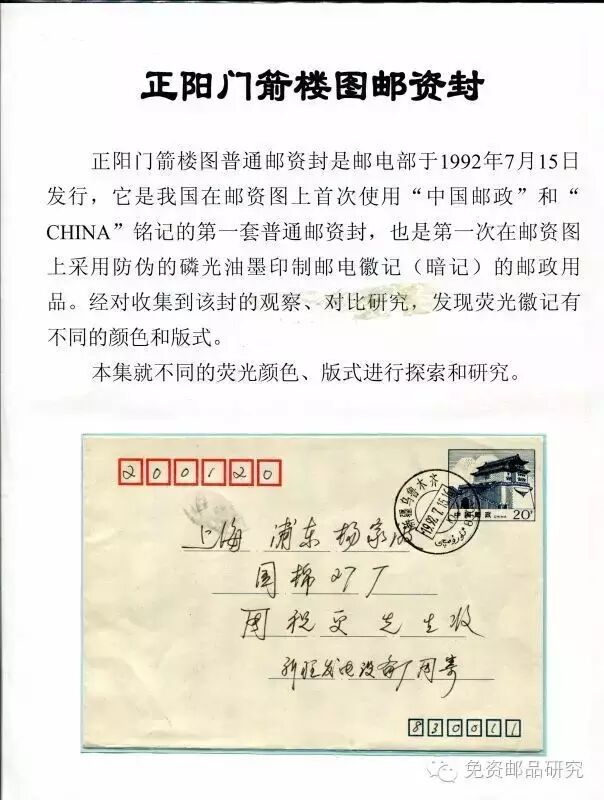 正阳门箭楼图邮资封
正阳门箭楼图普通邮资封是邮电部于1992年7月15日
发行，它是我国在邮资图上首次使用“中国邮政”和“
CHINA”铭记的第一套普通邮资封，也是第一次在邮资图
上采用防伪的磷光油墨印制邮电徽记（暗记）的邮政用
品。经对收集到该封的观察、对比研究，发现荧光徽记有
不同的颜色和版式。
本集就不同的荧光颜色、版式进行探索和研究。
200120
新疆乌鲁木齐
1992.7.15
中国邮政 CHINA 20分
上海 浦东 杨家
国棉27厂
周 税 更 先生收
新旺发电设备厂周寄
830011
免资邮品研究